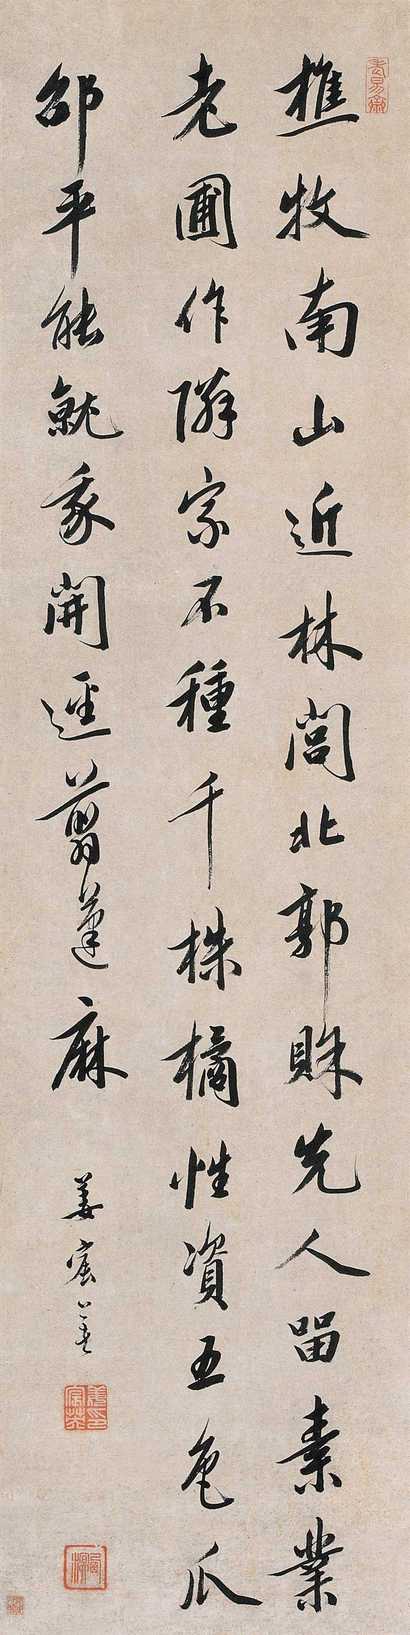 樵牧南山近林閭北郭賒先人留素業
老圃作隣家不種千株橘惟資五色瓜
邵平能就我開逕翦蓬麻
姜宸英